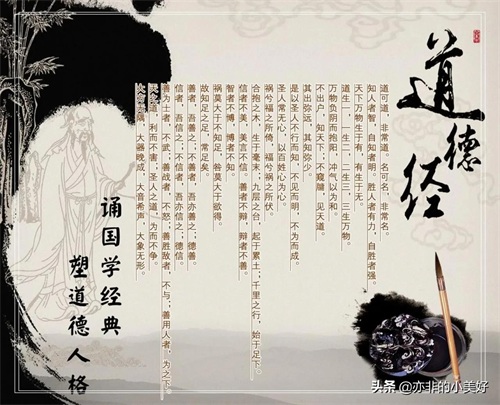 道德经
道可道，非常道。名可名，非常名。
知人者智，自知者明。胜人者有力，自胜者强。
天下万物生于有，有生于无。
道生一，一生二，二生三，三生万物。
万物负阴而抱阳，冲气以为和。
不出户，知天下；不窥牖，见天道。
其出弥远，其知弥少。
是以圣人不行而知，不见而明，不为而成。
圣人常无心，以百姓心为心。
祸兮福之所倚，福兮祸之所伏。
合抱之木，生于毫末；九层之台，起于累土；千里之行，始于足下。
信者不美，美言不信。善者不辩，辩者不善。
智者不博，博者不知。
祸莫大于不知足，咎莫大于欲得。
故知足之足，常足矣。
善者，吾善之；不善者，吾亦善之；德善。
信者，吾信之；不信者，吾亦信之；德信。
善为士者，不武；善战者，不怒；善胜敌者，不与；善用人者，为之下。
天之道，利而不害；圣人之道，为而不争。
大方无隅，大器晚成，大音希声，大象无形。
诵国学经典
塑道德人格
头条 @亦非的小美好